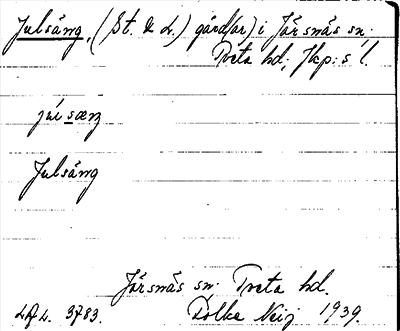 Julsäng, (St. & L.) gård(ar) i Järsnäs sn.
Tveta hd; Jkp:s l.
júlsæŋ
Julsäng
Järsnäs sn. Tveta hd.
3783. 1939.